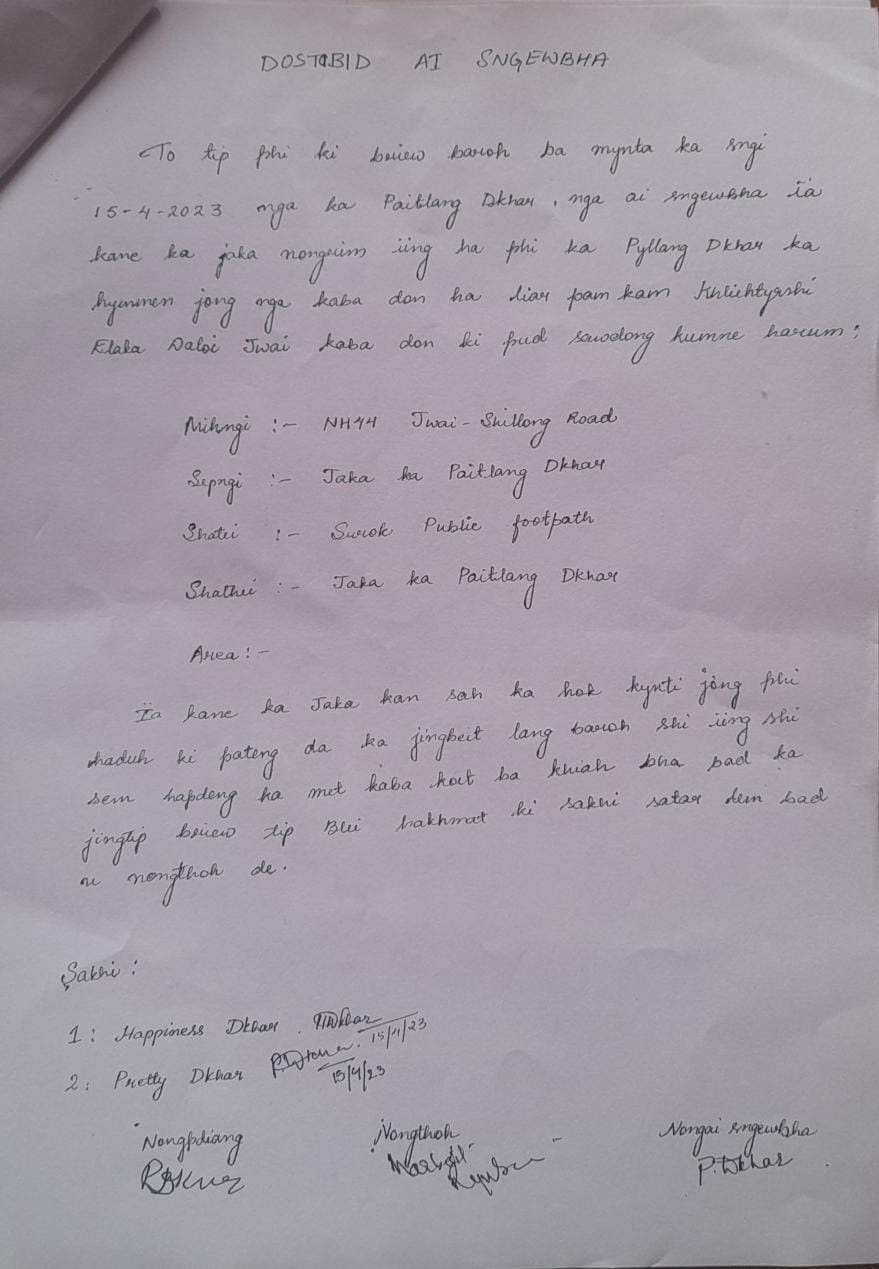 DOSTABID AI SNGEWBHA
To tip phi ki briew baroh ba mynta ka sngi
15-4-2023 nga ka Paitlang Dkhar, nga ai sngewbha ïa
kane ka jaka nongsum ïing ha phi ka Pyllang Dkhar ka
hynmen jong nga kaba don ha liar pam kam Khliehtyrshi
Elaka Daloi Jwai kaba don ki pud sawdong kumne harum:
Mihngi :- NH44 Jwai - Shillong Road
Sepngi :- Jaka ka Paitlang Dkhar
Shatei :- Surok Public footpath
Shathei :- Jaka ka Paitlang Dkhar
Area :-
Ïa kane ka Jaka kan sah ka hok kynti jong phi
haduh ki pateng da ka jingbeit lang baroh shi ïing shi
sem hapdeng ka met kaba koit ba khiah bha bad ka
jingtip briew tip Blei hakhmat ki sakhi satar dem bad
u nongthoh de.
Sakhi :
1: Happiness Dkhar. HDkhar 15/4/23
2: Pretty Dkhar P.Dkhar. 15/4/23
Nongpdiang Nongthoh Nongai sngewbha
P.Dkhar